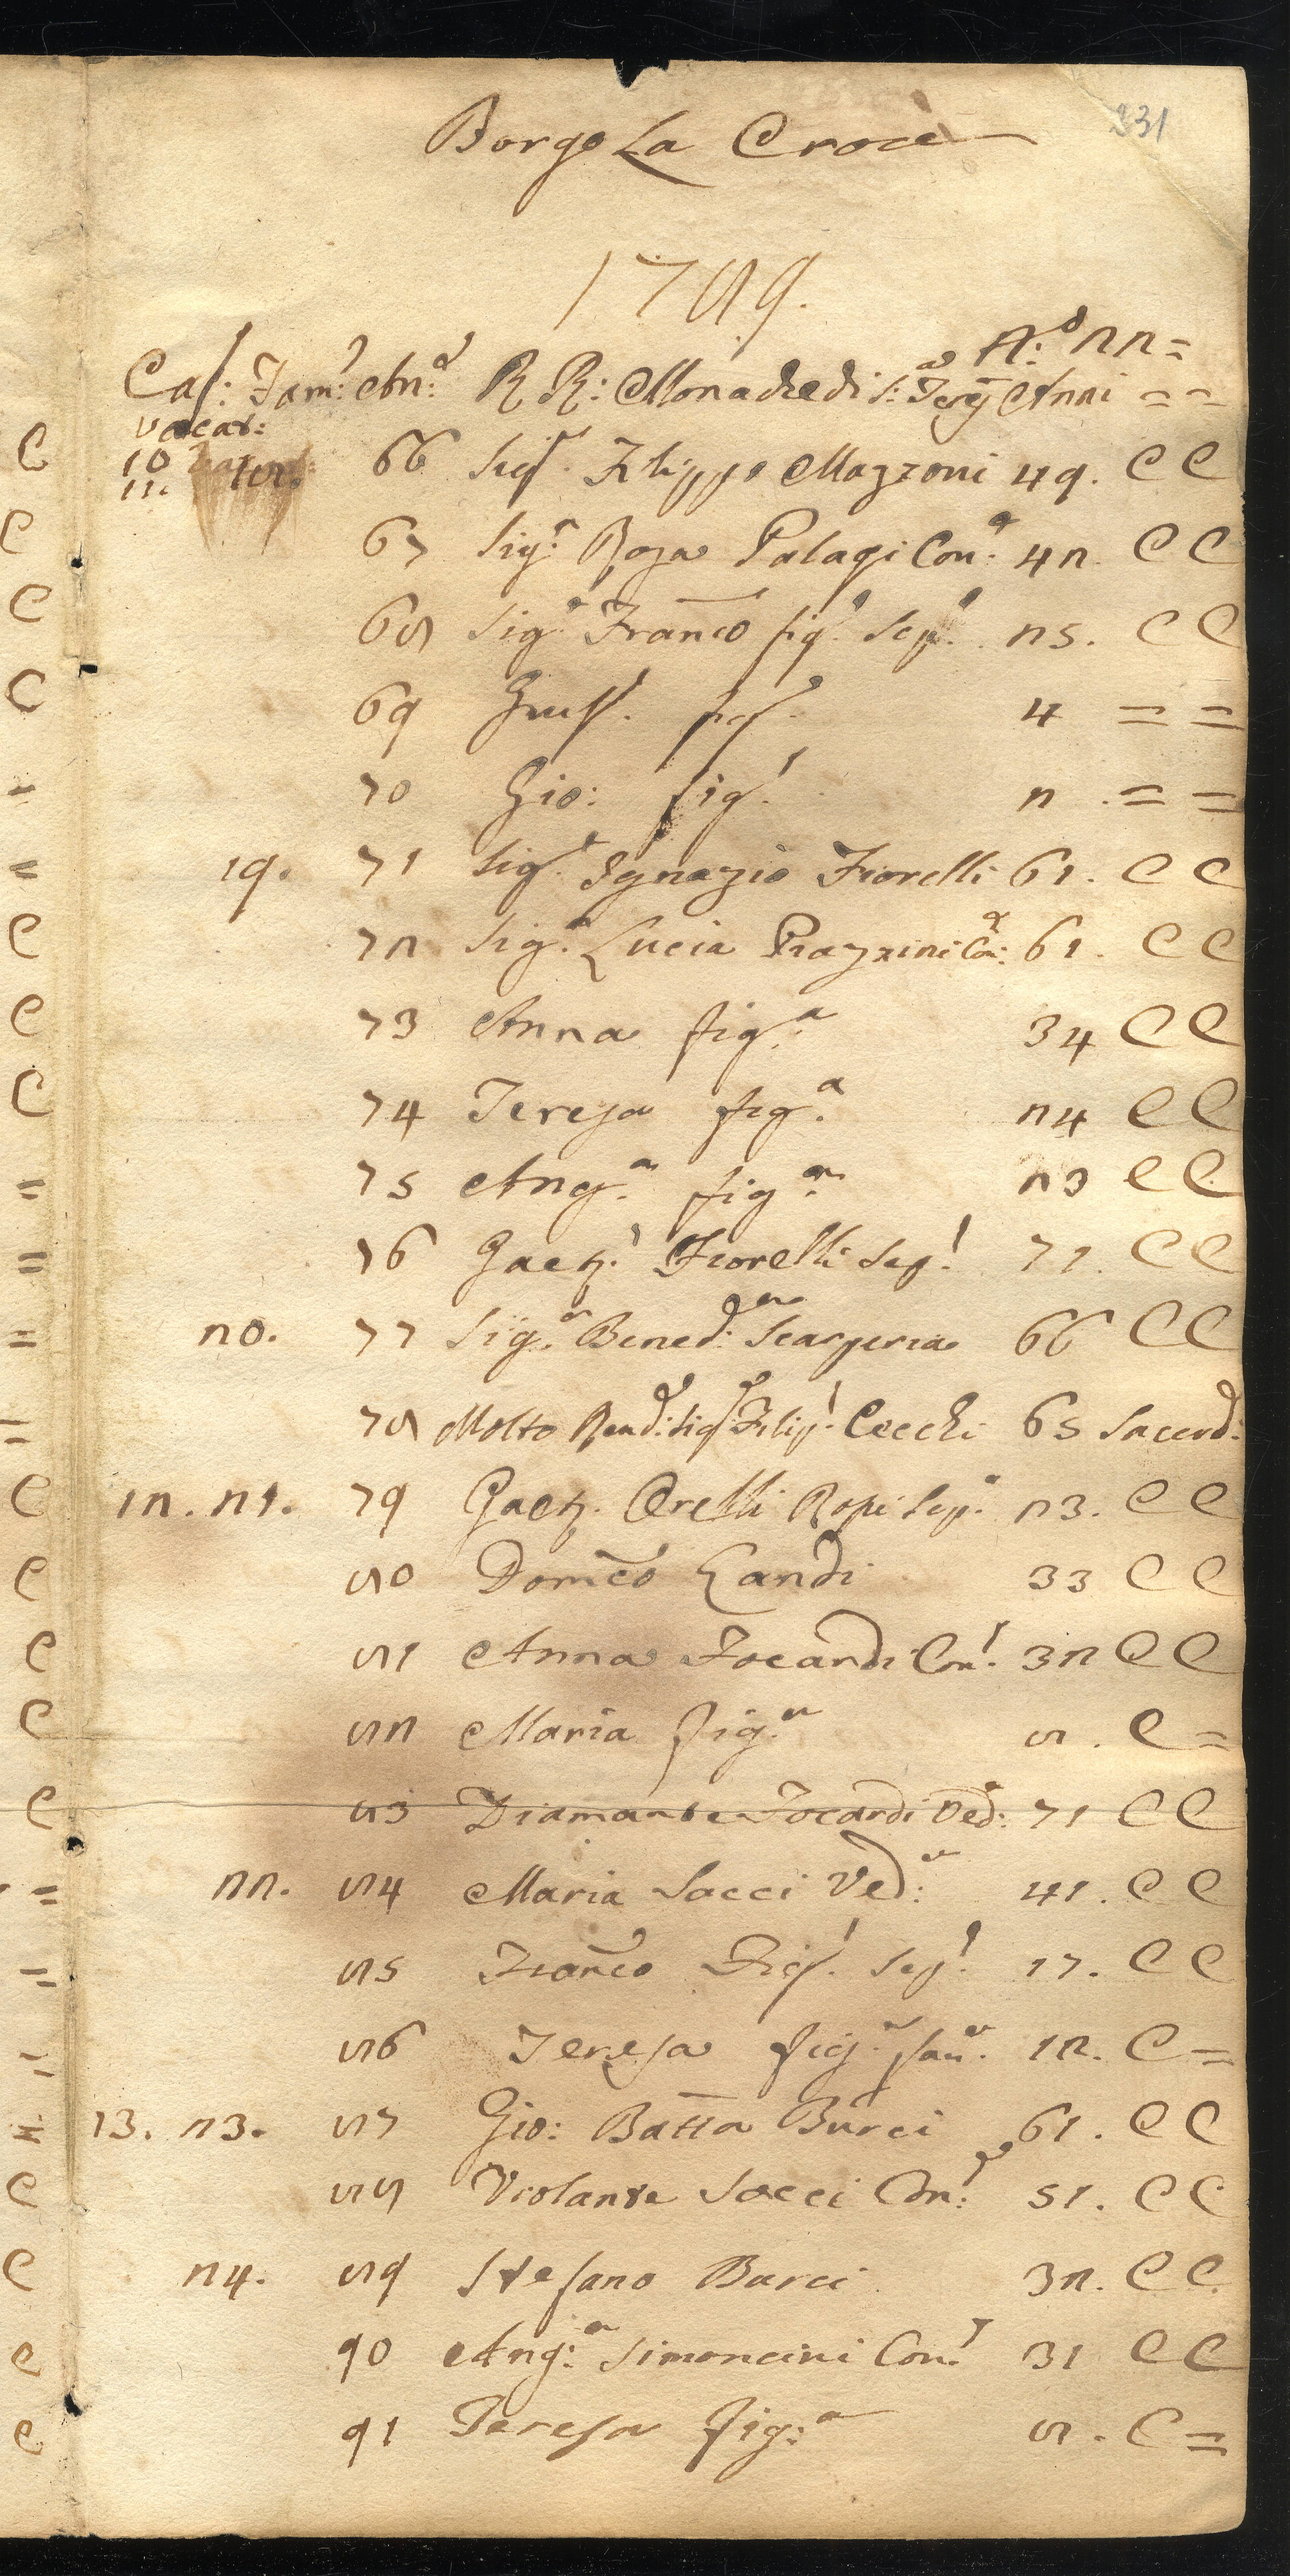 331
Borgo La Croce
1789.
N:° 22=
Cas: Fam: An: RR: Monache di S: Anni = =
vacat:
10
11. 66 Sig.r Filippo Mazzoni 49. C C
67 Sig.ra Rosa Palagi Con: 42. C C
68 Sig.r Franco fig.o Sep.o 25. C C
69 Gius. fig.o 4 = =
70 Gio: fig.o 2 = =
19. 71 Sig.r Ignazio Fiorelli 61. C C
72 Sig.a Lucia Con: 61. C C
73 Anna fig.a 34 C C
74 Teresa fig.a 24 C C
75 Ang.a fig.a 23 C C
76 Gaet.o Fiorelli Sep.o 71. C C
20. 77 Sig.a Bened:a Scarperia 66 C C
78 Molto Rend:o Sig.r Filip.o Cecchi 65 Sacerd:
12. 21. 79 Gaet. Orelli Ropi Sep.o 23. C C
80 Domco Landi 33 C C
81 Anna Focardi Con.e 32 C C
82 Maria fig.a 8. C =
83 Diamante Focardi Ved: 71 C C
22. 84 Maria Socci Ved:a 41. C C
85 Franco Fig.o Sep.o 17. C C
86 Teresa fig.a fan.a 12. C =
13. 23. 87 Gio: Batta Burci 61. C C
88 Violante Socci Con:e 51. C C
24. 89 Stefano Burci 32. C C
90 Ang:a Simoncini Con.e 31 C C
91 Teresa fig:a 8. C =